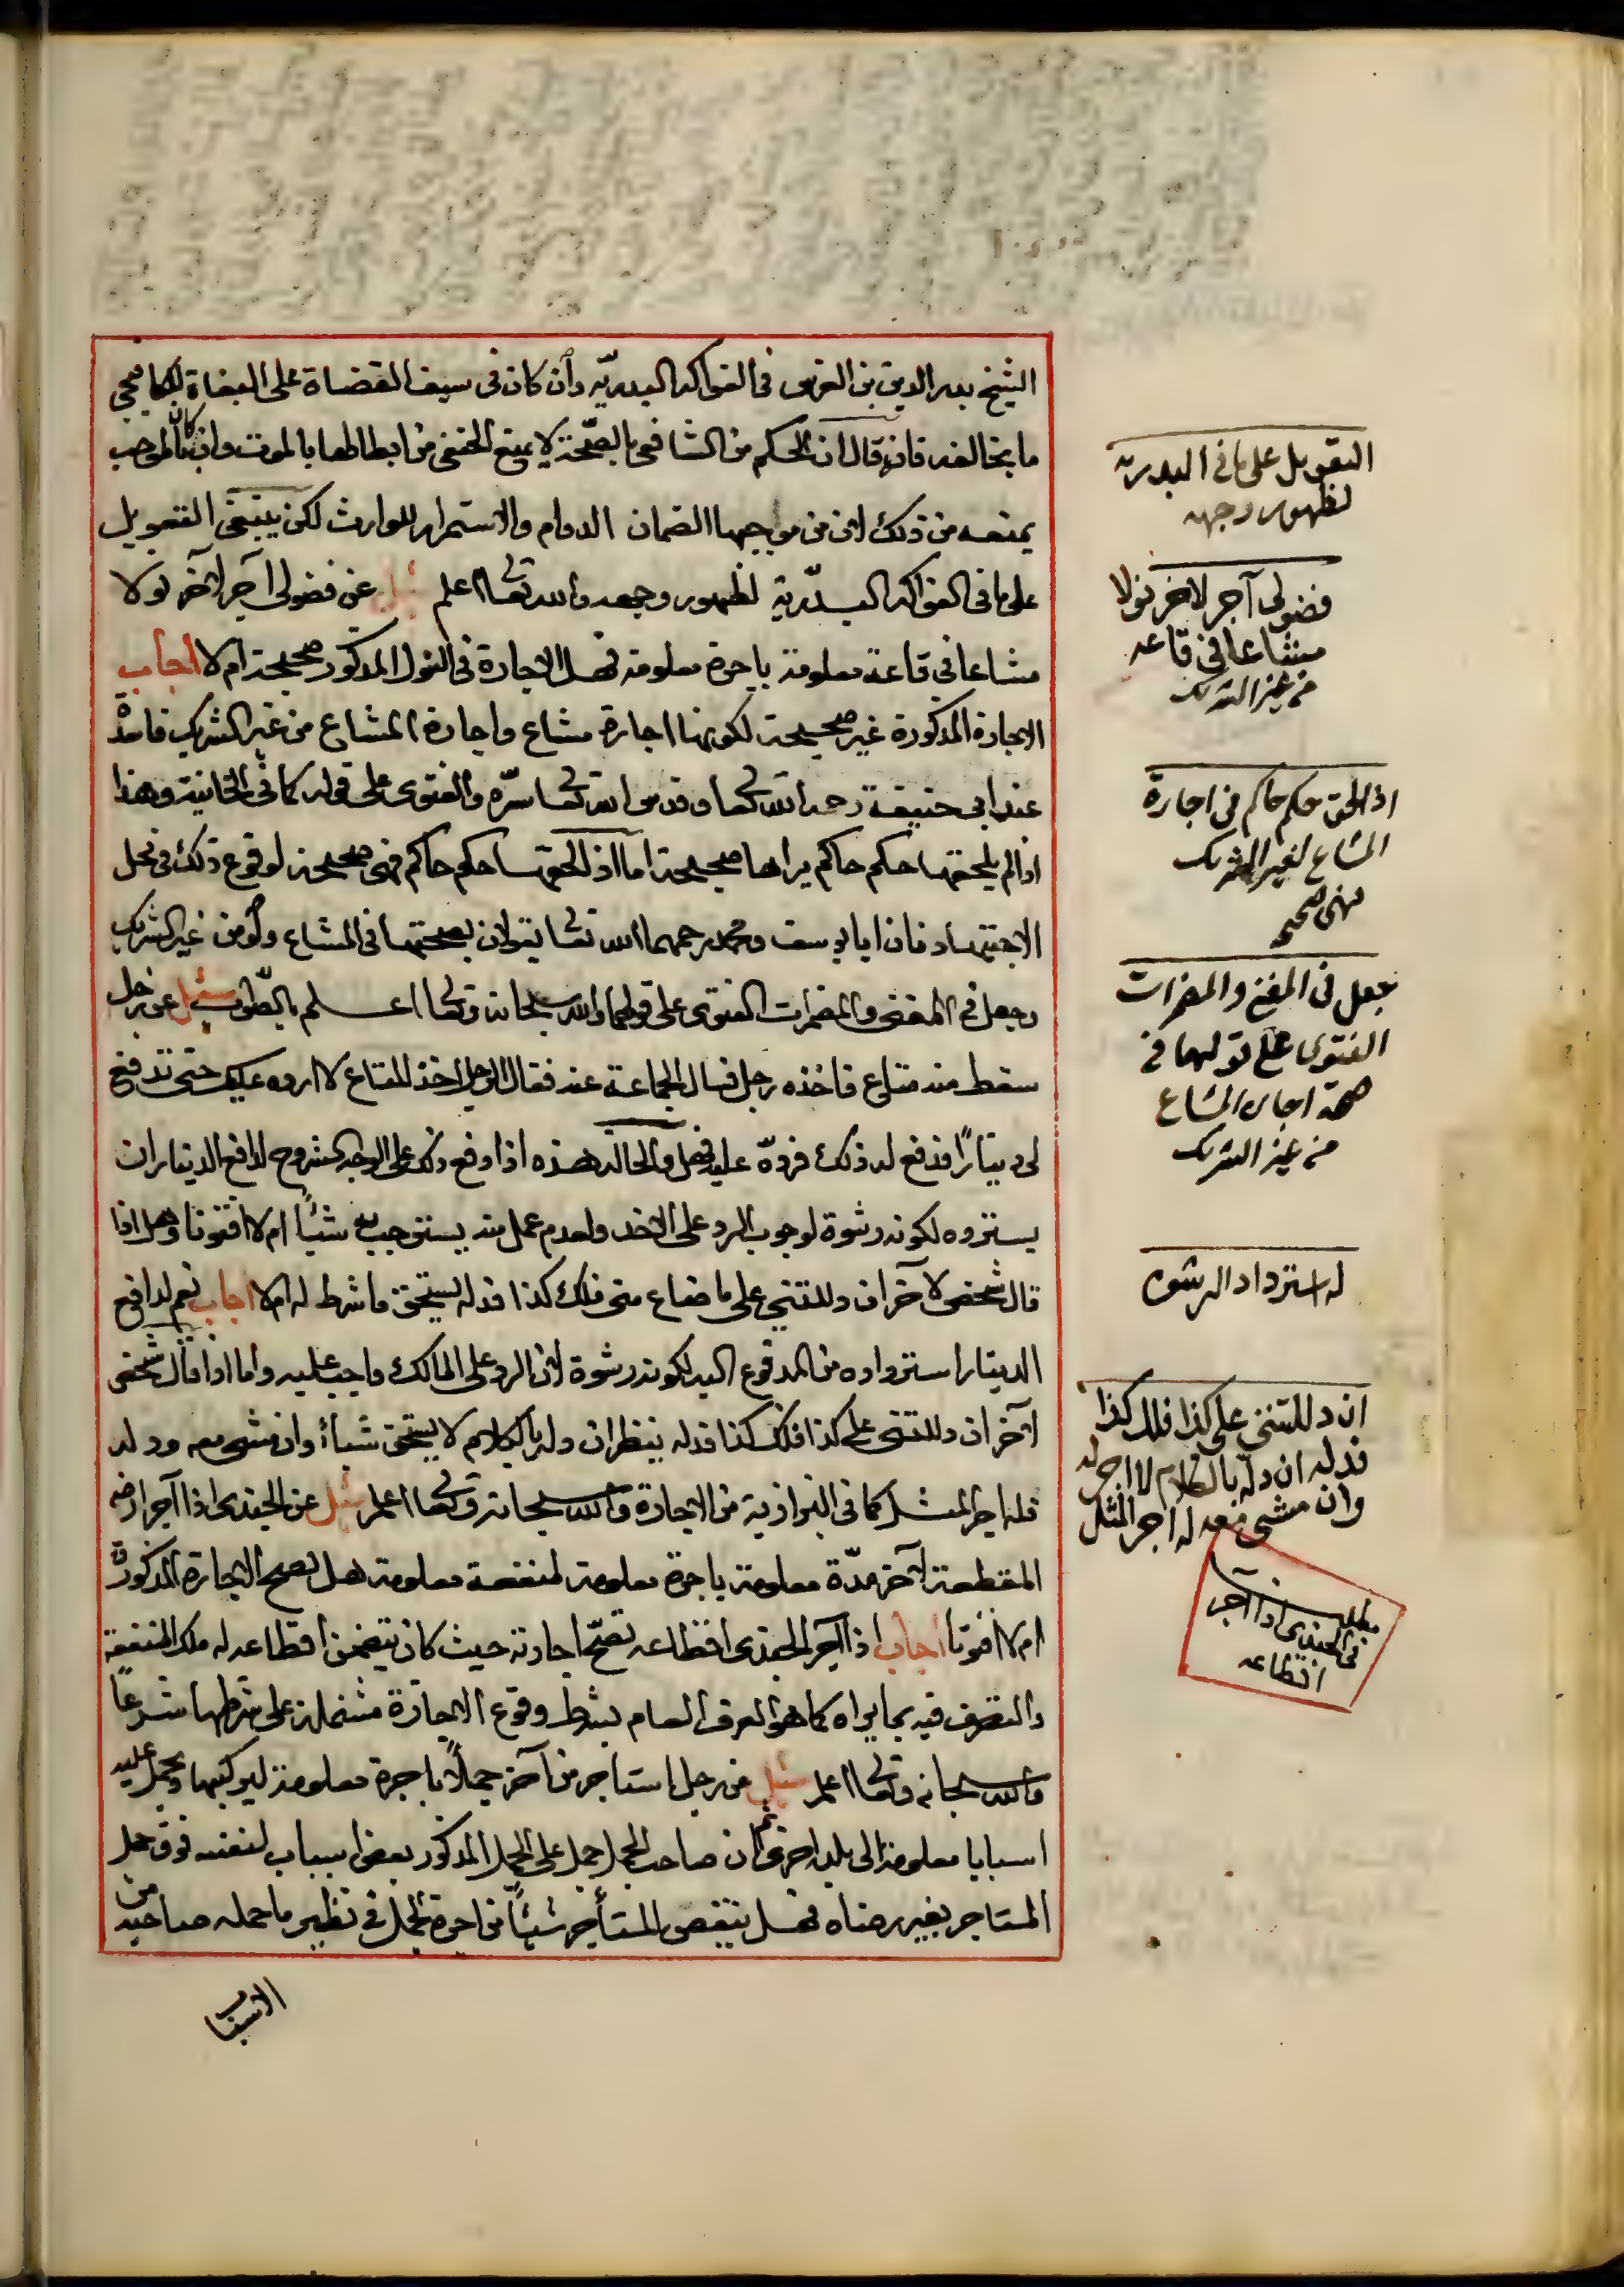 الشيخ بدر الدين بن الغرس في الفواكه البدريّه وأن كان في سيف القضاة على البغاة
ما يخالفه فانه قال ان الحكم من الشافعي بالصّحّة لا يمنع الحنفي من ابطالها بالموت وان كان الموجب
يمنعه من ذلك لان من مواجبها الضمان الدوام والاستمرار للوارث لكن ينبغي التعويل
على ما في الفواكه البدّرية لظهور وجهه والله تعالى اعلم سئل عن فضولي آجر لاخر نولا
مشاعا في قاعة معلومة باجرة معلومة فهل الاجارة في النول المذكور صحيحة ام لا اجاب
الاجارة المذكورة غير صحيحة لكونها اجارة مشاع واجارة المشاع من غير الشريك فاسدة
عند ابي حنيفة رحمه الله تعالى وقدس الله تعالى سرّه والفتوى على قوله كما في الخانية وهذا
اذا لم يلحقها حكم حاكم يراها صحيحة اما اذا لحقها حكم حاكم فهي صحيحة لوقوع ذلك في محل
الاجتهاد فان ابا يوسف ومحمد رحمهما الله تعالى يقولان بصحتها في المشاع ولو من غير الشريك
وجعل في المغني والمضمرات الفتوى على قولهما والله سبحانه وتعالى اعلم بالصّواب سئيل عن رجل
سقط منه متاع فاخذه رجل فسال الجماعة عنه فقال الرجل اخذ المتاع لا ارده عليك حتى تدفع
لي دينارًا فدفع له ذلك فردّه عليه فهل والحالة هذه اذا وقع ذلك على الوجه المشروح لدافع الدينار ان
يسترده لكونه رشوة لوجوب الرد على الاخذ ولعدم عمل منه يستوجب به شيئًا ام لا افتونا وهل اذا
قال شخص لاخر ان دللتني على ما ضاع مني فلك كذا فدله يستحق ما شرط له ام لا اجاب نعم لدافع
الدينار استرداده من المدفوع اليه لكونه رشوة لان الرد على المالك واجب عليه واما اذا قال شخص
لآخر ان دللتني على كذا فلك كذا فدله ينظر ان دله بالكلام لا يستحق شيأ وان مشى معه ودله
فله اجر المثل كما في البزازية من الاجارة والله سبحانه وتعالى اعلم سئل عن الجندي اذا آجر ارضه
المقطعة لآخر مدّة معلومة باجرة معلومة لمنفعة معلومة هل تصح الاجارة المذكورة
ام لا افتونا اجاب اذا آجر الجندي اقطاعه تصحّ اجارته حيث كان يتضمن اقطاعه له ملك المنفعة
والتصرف فيه بما يراه كما هو العرف العام بشرط وقوع الاجارة مشتملة على شرطها شرعًا
والله سبحانه وتعالى اعلم سئل عن رجل استاجر من آخر جملاً باجرة معلومة ليركبها ويحمل عليه
اسبابا معلومة الى بلد اخرى ثم ان صاحب الجمل حمل على الجمل المذكور بعض اسباب لنفسه فوق حمل
المستاجر بغير رضاه فهل ينقص المستأجر شيئًا من اجرة الجمل في نظير ما حمله صاحبه من
الاسباب
التعويل على ما في البدريه
لظهور وجهه
فضولى آجر لاخر نولا
مشاعا في قاعه
من غير الشريك
اذا لحق حكم حاكم في اجارة
المشاع لغير الشريك
فهي صحيحه
جعل في المغني والمضمرات
الفتوى على قولهما في
صحة اجارة المشاع
من غير الشريك
له استرداد الرشوه
ان دللتني على كذا فلك كذا
فدله ان دله بالكلام لا اجر له
وان مشى معه له اجر المثل
مطلب
في الجندي اذا آجر
اقطاعه